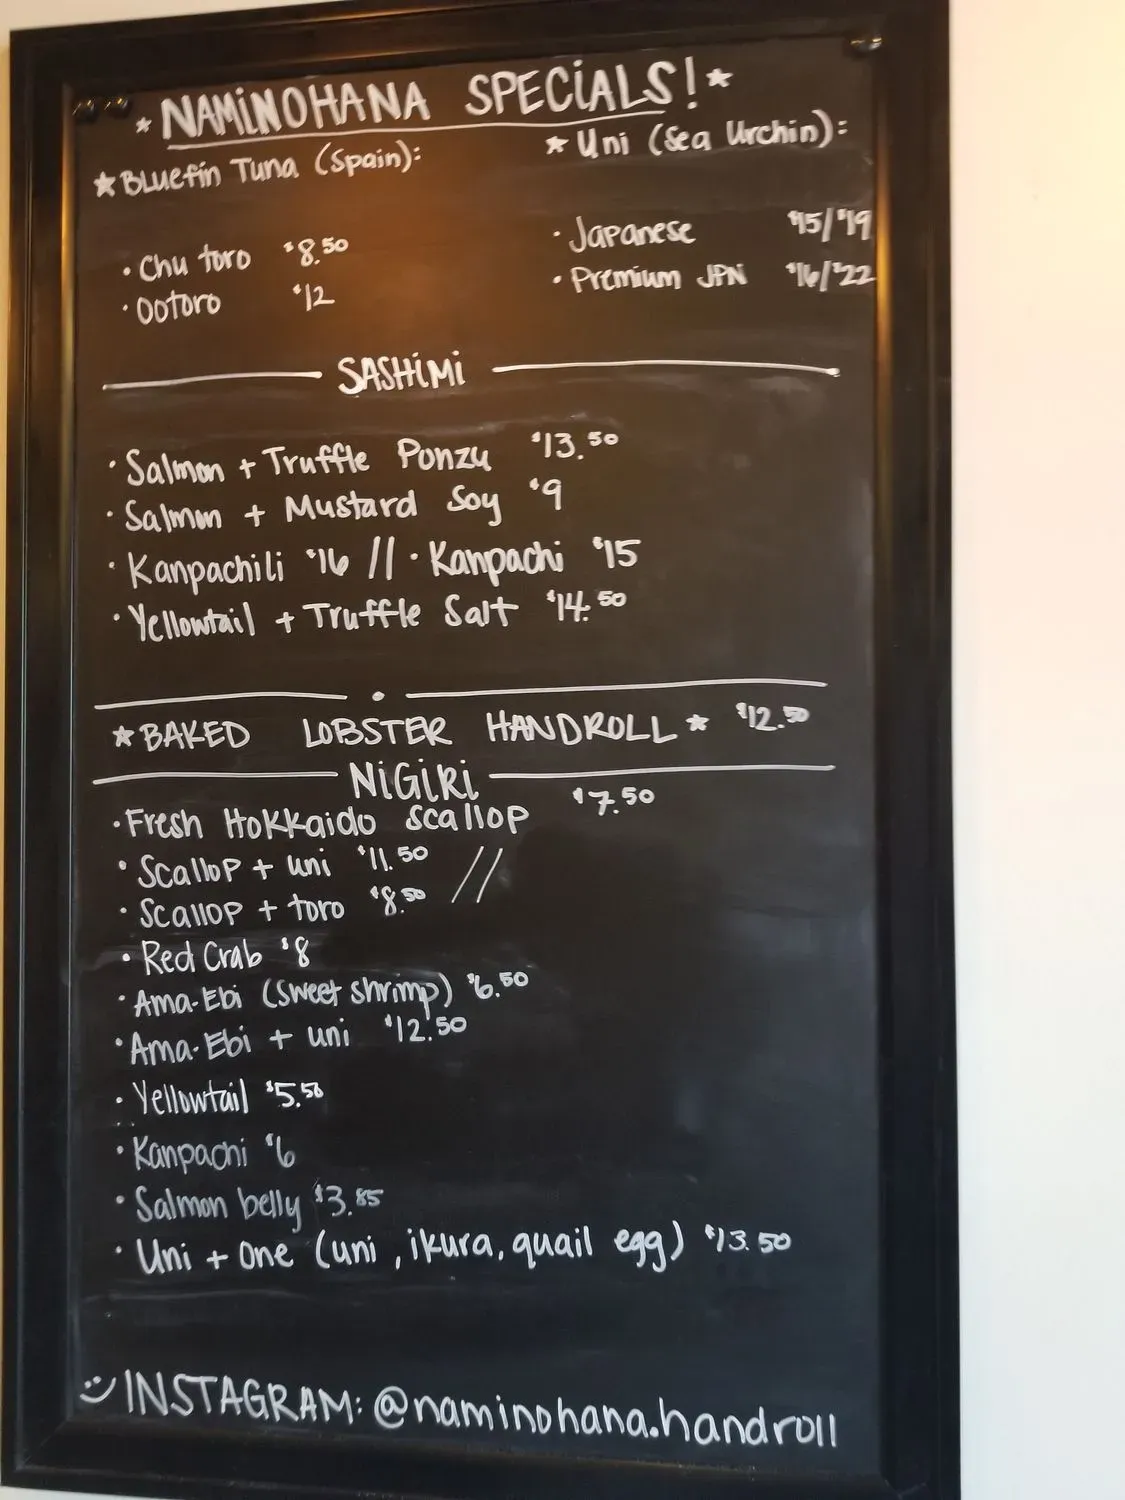 * NAMINOHANA SPECIALS! *
* Bluefin Tuna (Spain):
* Uni (Sea Urchin):
• Chu toro $8.50
• Ootoro $12
• Japanese $15/$19
• Premium JPN $16/$22
SASHIMI
• Salmon + Truffle Ponzu $13.50
• Salmon + Mustard Soy $9
• Kanpachili $16 // • Kanpachi $15
• Yellowtail + Truffle Salt $14.50
* BAKED LOBSTER HANDROLL * $12.50
NIGIRI
• Fresh Hokkaido scallop $7.50
• Scallop + uni $11.50 //
• Scallop + toro $8.50
• Red Crab $8
• Ama-Ebi (sweet shrimp) $6.50
• Ama-Ebi + uni $12.50
• Yellowtail $5.50
• Kanpachi $6
• Salmon belly $3.85
• Uni + One (uni, ikura, quail egg) $13.50
INSTAGRAM: @naminohana.handroll